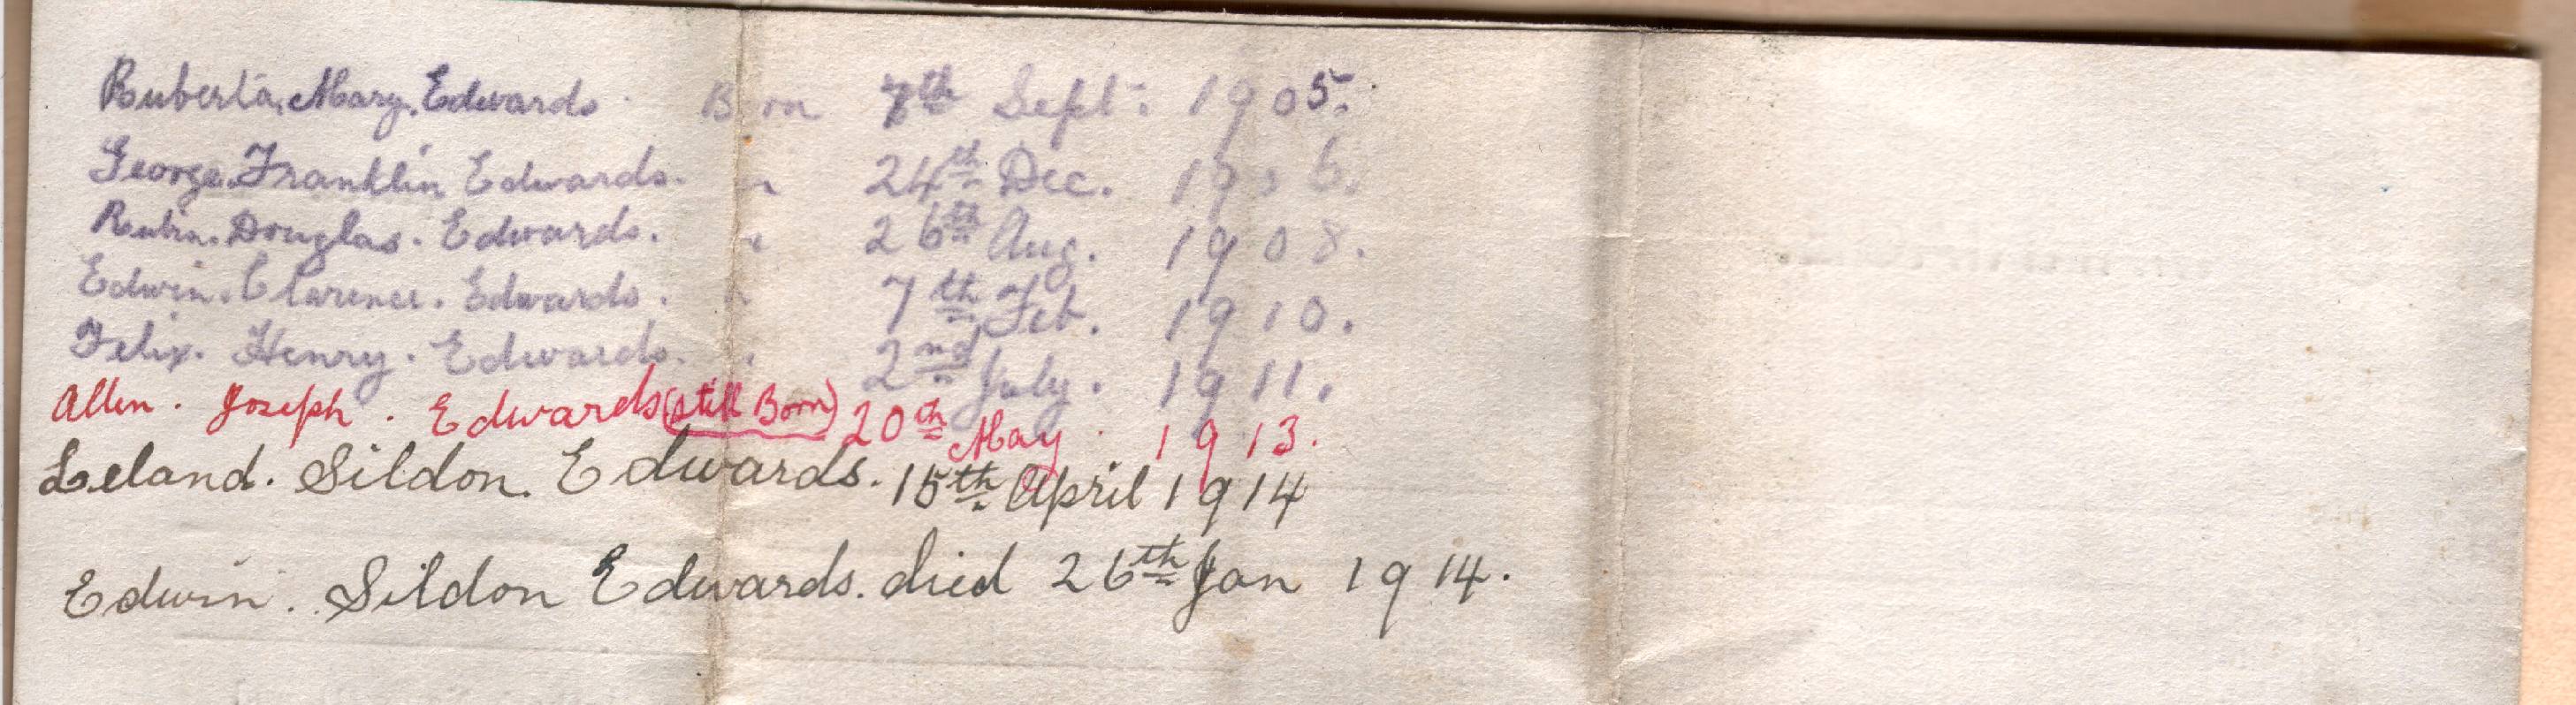 Ruberta. Mary. Edwards. Born 7th Sept. 1905.
George. Franklin Edwards. " 24th Dec. 1906.
Rubin. Douglas. Edwards. " 26th Aug. 1908.
Edwin. Clarence. Edwards. " 7th Feb. 1910.
Felix. Henry. Edwards. " 2nd July. 1911.
Allen. Joseph. Edwards (still Born) 20th May. 1913.
Leland. Sildon. Edwards. 15th April 1914
Edwin. Sildon Edwards. died 26th Jan 1914.